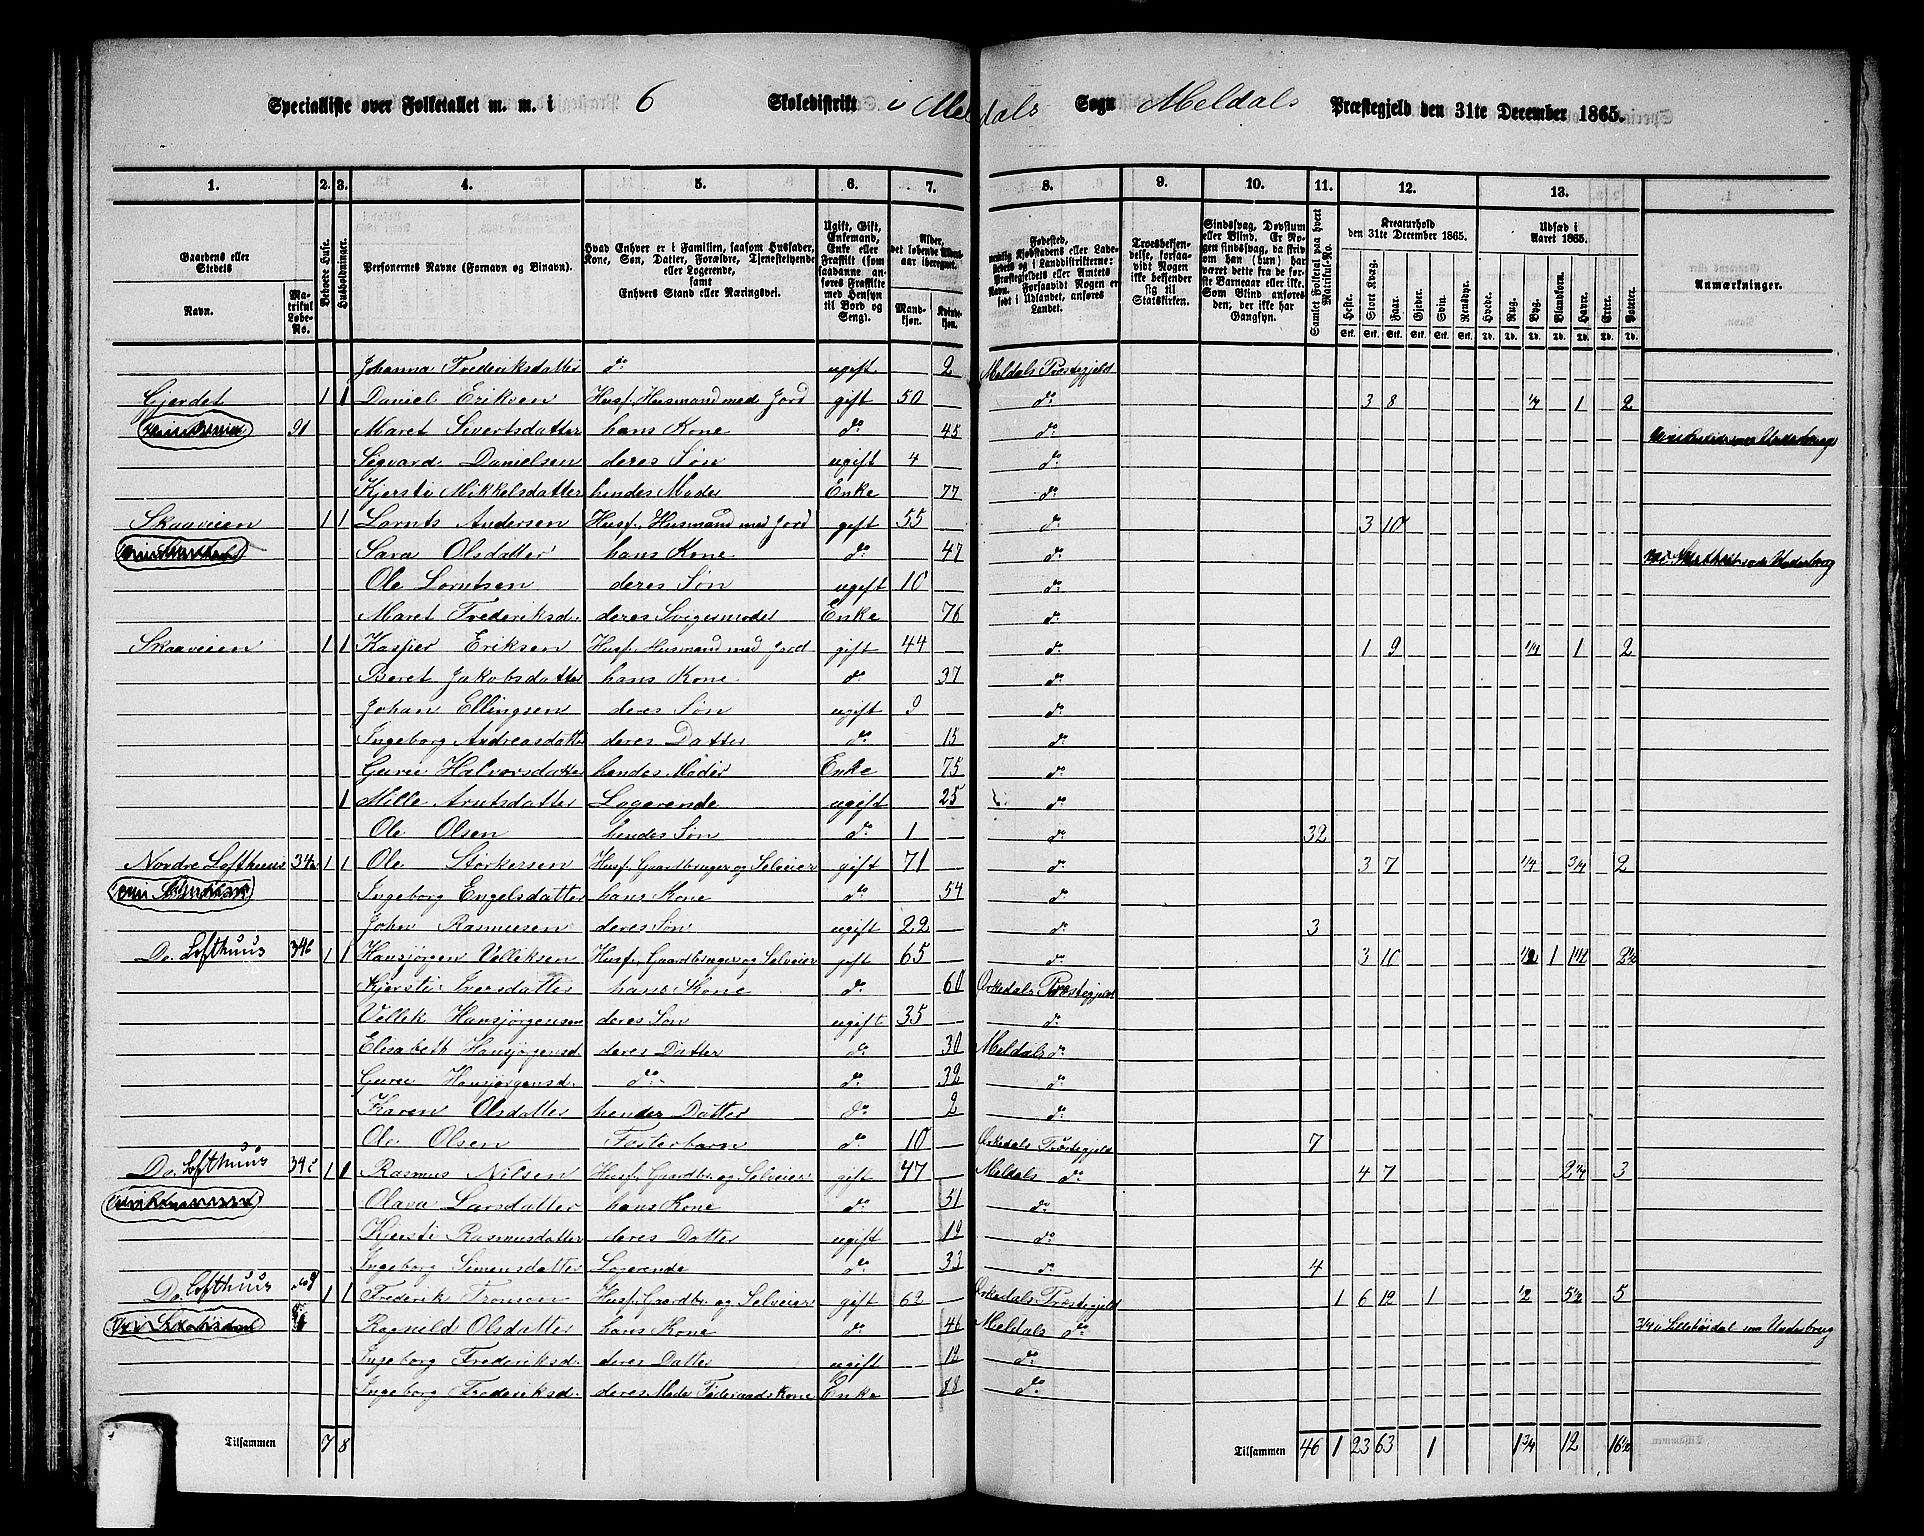 Specialliste over Folketallet m. m. i 6 Skoledistrikt i Meldals Sogn Meldals Præstegjeld den 31te December 1865.
1. 2. 3. 4. 5. 6. 7. 8. 9. 10. 11. 12. 13.
Gaardens eller Stedets Navn. Matrikul Løbe-No. Beboede Huse. Husholdninger. Personernes Navne (Fornavn og Tilnavn). Hvad Enhver er i Familien, saasom Husfader, Kone, Søn, Datter, Forældre, Tjenestetyende eller Logerende, samt Enhvers Stand eller Næringsvei. Ugift, Gift, Enkemand, Enke eller Fraskilt (som saadanne anføres Fraskilte med Hensyn til Bord og Seng). Alder, det løbende Aldersaar iberegnet. Mandkjøn. Kvindekjøn. Troesbekjendelse, forsaavidt Nogen ikke bekjender sig til Statskirken. Samlet Folketal paa hvert Matrikul-No. Kreaturhold den 31te December 1865. Udsæd i Aaret 1865. Anmærkninger.
Heste. Stort Kvæg. Faar. Gjeder. Svin. Rensdyr. Hvede. Rug. Byg. Blandkorn. Havre. Erter. Poteter.
Johanna Frederiksdatter do ugift 2 Meldals Præstegjeld
Gjerdet 1 1 Daniel Eriksen Husf. Husmand med Jord gift 50 do 3 8 1/4 1 2
91 Maret Sivertsdatter hans Kone do 45 do
Sigvard Danielsen deres Søn ugift 4 do
Kjersti Mikkelsdatter hendes Moder Enke 77 do
Skaaveien 1 1 Lornts Andersen Husf. Husmand med Jord gift 55 do 3 10
Sara Olsdatter hans Kone do 47 do
Ole Lorntsen deres Søn ugift 10 do
Maret Frederiksd. deres Svigermoder Enke 76 do
Skaaveien 1 1 Kasper Eriksen Husf. Husmand med Jord gift 44 do 1 9 1/4 1 2
Beret Jakobsdatter hans Kone do 37 do
Johan Ellingsen deres Søn ugift 9 do
Ingeborg Andreasdatter deres Datter do 15 do
Guru Halvorsdatter hendes Moder Enke 75 do
1 Mille Arntsdatter Logerende ugift 25 do
Ole Olsen hendes Søn do 1 do 32
Nordre Lofthuus 34a 1 1 Ole Størkersen Husf. Gaardbruger og Selveier gift 71 do 3 7 1/4 3/4 2
Ingeborg Engelsdatter hans Kone do 54 do
John Rasmusen deres Søn ugift 22 do 3
Do. Lofthuus 34b 1 1 Hansjørgen Velleksen Husf. Gaardbruger og Selveier gift 65 do 3 10 1/2 1 1 1/2 2 1/2
Kjersti Iversdatter hans Kone do 60 Orkedals Præstegjeld
Vellek Hansjørgensen deres Søn ugift 35 do
Elisabeth Hansjørgensd. deres Datter do 30 Meldals do
Guru Hansjørgensd. do do 32 do
Karen Olsdatter hendes Datter do 2 do
Ole Olsen Fosterbarn do 10 Orkedals Præstegjeld 7
Do. Lofthuus 34c 1 1 Rasmus Nilsen Husf. Gaardbr. og Selveier gift 47 Meldals do 4 7 2 1/4 3
Olava Larsdatter hans Kone do 51 do
Kjersti Rasmusdatter deres Datter ugift 12 do
Ingeborg Simensdatter Logerende do 33 do 4
Do. Lofthuus 1 1 Frederik Tronsen Husf. Gaardbr. og Selveier gift 62 Orkedals Præstegjeld 1 6 12 1 1/2 5 1/2 5
Ragnild Olsdatter hans Kone do 46 Meldals do
Ingeborg Frederiksd. deres Datter ugift 12 do
Ingeborg Frederiksd. deres Moder Føderaadskone Enke 88 do
Tilsammen 7 8 Tilsammen 46 1 23 63 1 1 3/4 12 16 1/2